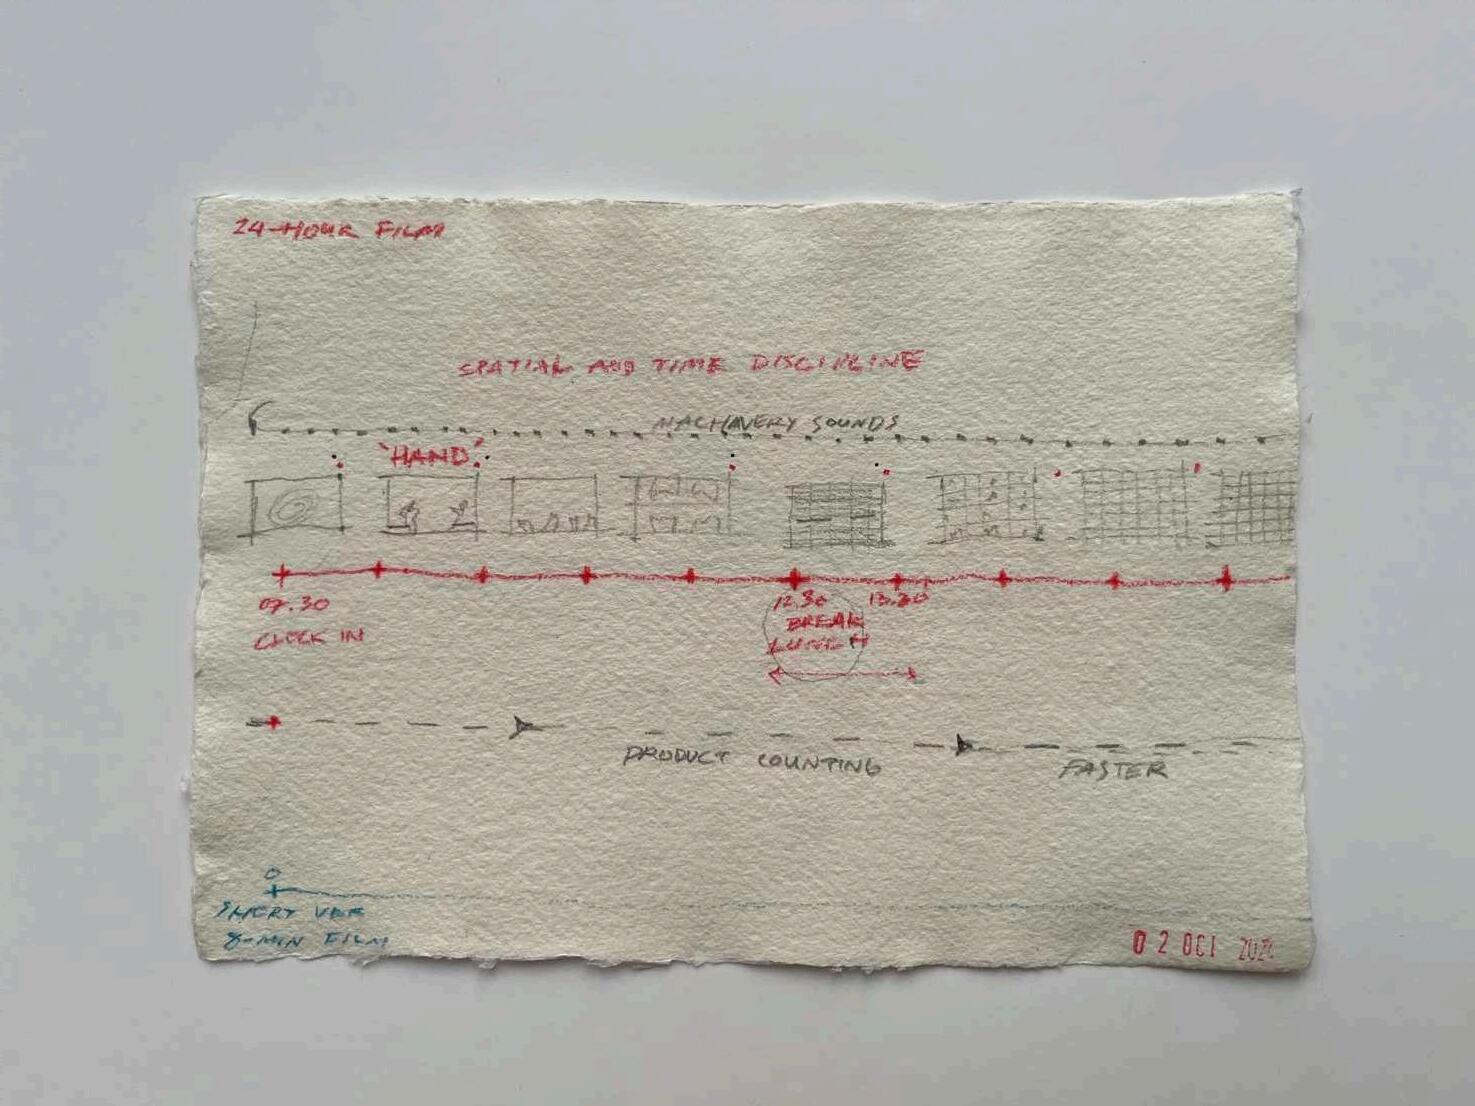 24-HOUR FILM
SPATIAL AND TIME DISCIPLINE
MACHINERY SOUNDS
'HAND'
07.30
CLOCK IN
12.30
13.30
BREAK
LUNCH
PRODUCT COUNTING
FASTER
0
SHORT VER
8-MIN FILM
02 OCT